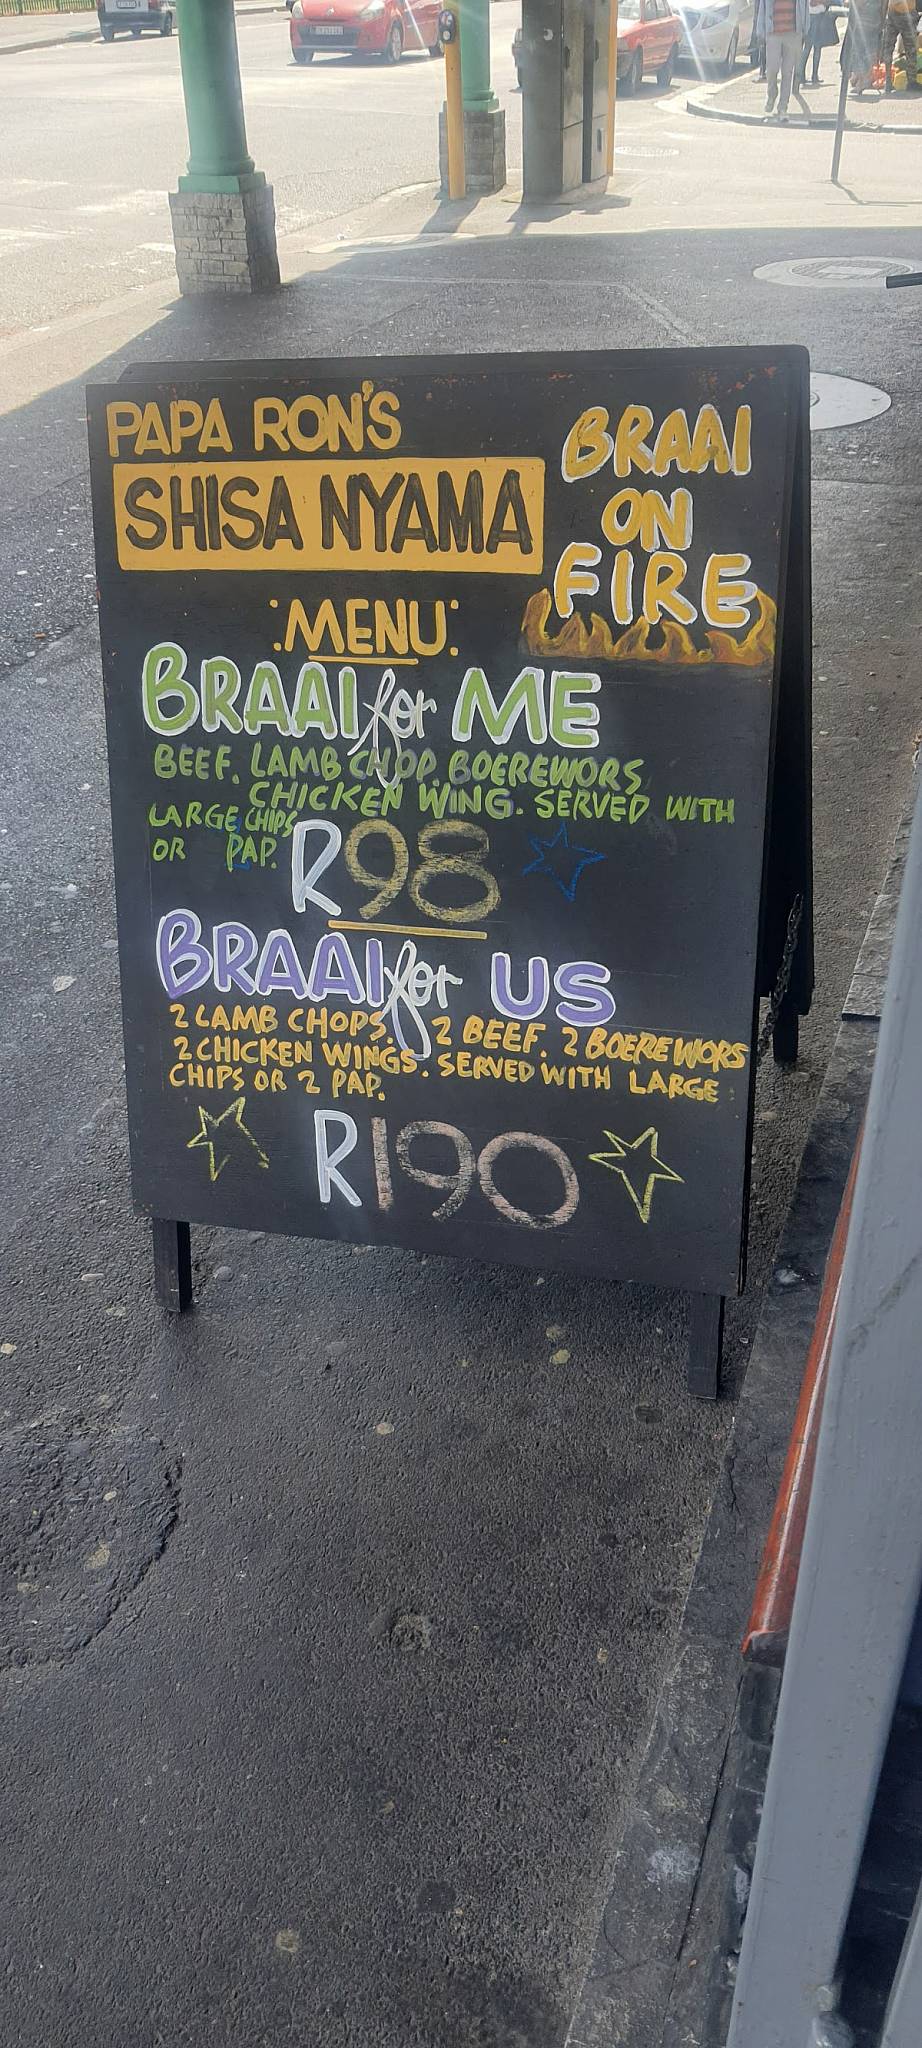 PAPA RON'S
SHISA NYAMA
BRAAI
ON
FIRE
:MENU:
BRAAI for ME
BEEF. LAMB CHOP. BOEREWORS
CHICKEN WING. SERVED WITH
LARGE CHIPS
OR PAP.
R98
BRAAI for US
2 LAMB CHOPS. 2 BEEF. 2 BOEREWORS
2 CHICKEN WINGS. SERVED WITH LARGE
CHIPS OR 2 PAP.
R190